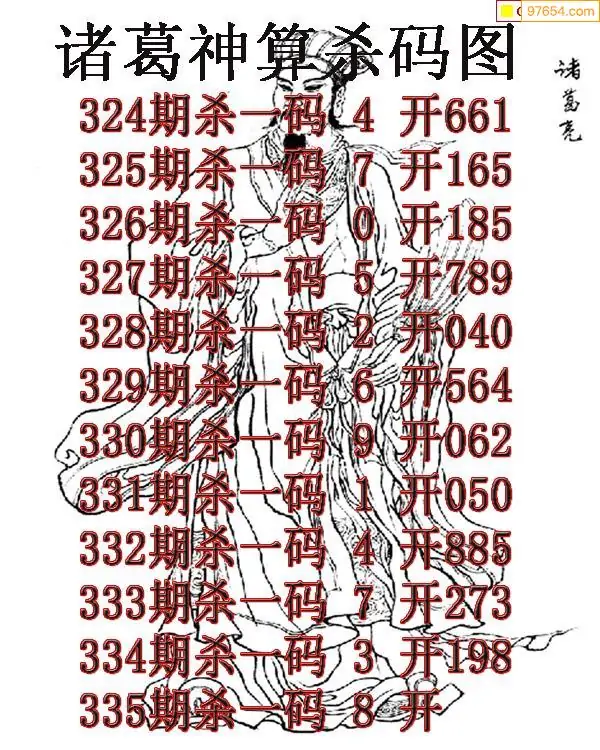 97654.com
诸葛神算杀码图
诸葛亮
324期杀一码 4 开661
325期杀一码 7 开165
326期杀一码 0 开185
327期杀一码 5 开789
328期杀一码 2 开040
329期杀一码 6 开564
330期杀一码 9 开062
331期杀一码 1 开050
332期杀一码 4 开885
333期杀一码 7 开273
334期杀一码 3 开198
335期杀一码 8 开